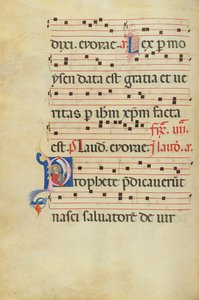 dixi. evovae. a Lex p mo
ysen data est gratia et ve
ritas p ihm xpm facta
fr. iiii.
est P laud. evovae. J laud. a.
Prophete pdicaverūt
nasci salvatorē de vir